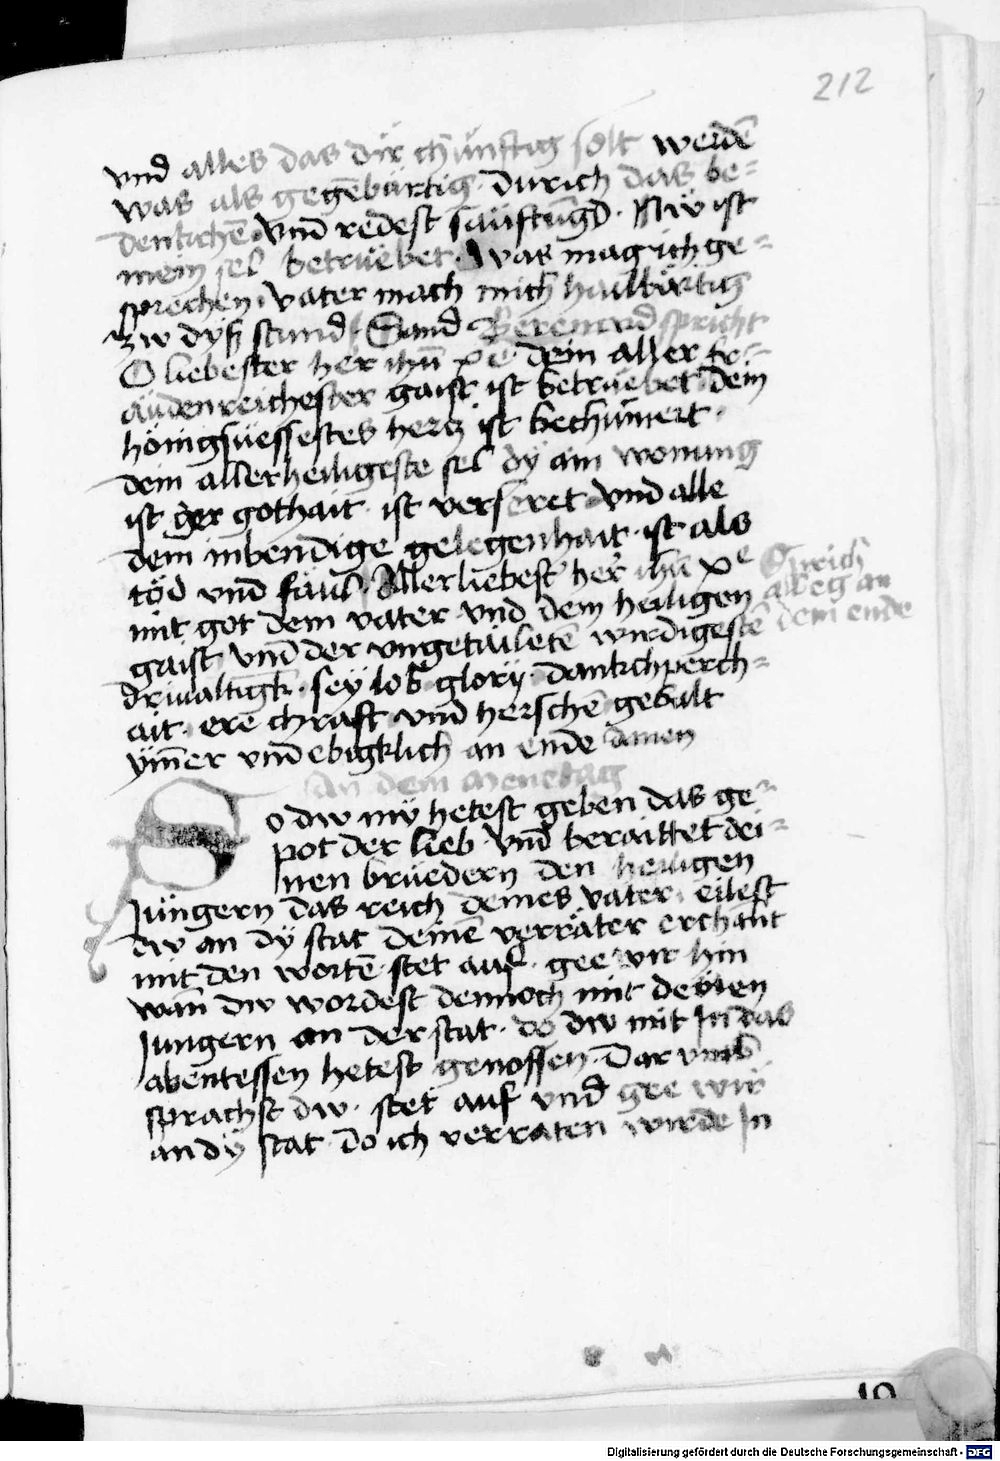 212
vnd alles das dir chünftig solt werdē
was als gegēbürtig · durich das be=
denkchē vnd redest säuftūgd · Nw ist
mein sel betrüebet · Was mag ich ge=
sprechen · vater mach mich hailbärtig
zw dyser stund Sand Berēnnrd spricht
O liebester her ihū xpe · dein aller fr=
äudenreichester gaist ist betrüebet dein
hönigsüessestes hertz ist bechümert ·
dein allerheiligeste sel dy ain wonung
ist der gothait · ist verseret vnd alle
dein inbendige gelegenhait · ist als
töd vnd fäul · Allerliebest her ihū xpe
mit got dem vater vnd dem heiligen
gaist vnd der vngetäiletē wirdigestē
drivaltigk · sey lob · glory · dankchperch=
ait · ere chraft vnd herschē gebalt
ymer vnd ebigklich an ende amen
Sprich
albeg an
dem ende
an dem menetag
So dw nw hetest geben das ge=
pot der lieb · vnd beraittet dei=
nen brüedern den heiligen
Jüngern das reich deines vater · eilest
dw an dy stat deinē verräter erchānt
mit den wortē · stet auf · gee wir hin
wān dw wordest dennoch mit deinen
Jungern an der stat · do dw mit In das
abentessen hetest genossen · Dar vmb
sprachst dw · stet auf vnd gee wir
an dy stat · do ich verraten wirde In
10
Digitalisierung gefördert durch die Deutsche Forschungsgemeinschaft - DFG